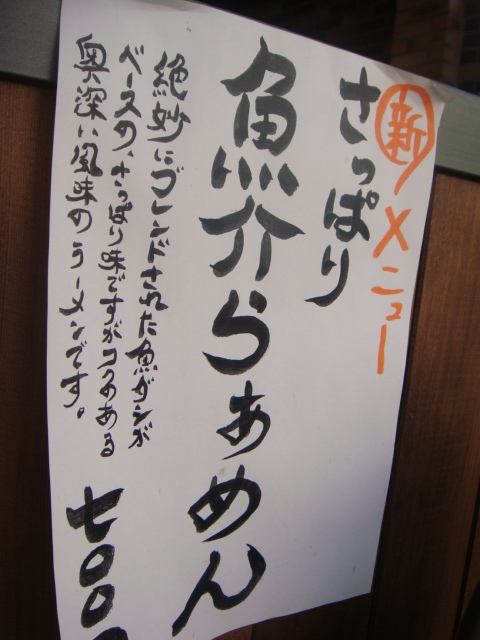 新メニュー
さっぱり
魚介らぁめん
絶妙にブレンドされた魚ダシが
ベースの、さっぱり味ですがコクのある
奥深い風味のラーメンです。
七〇〇